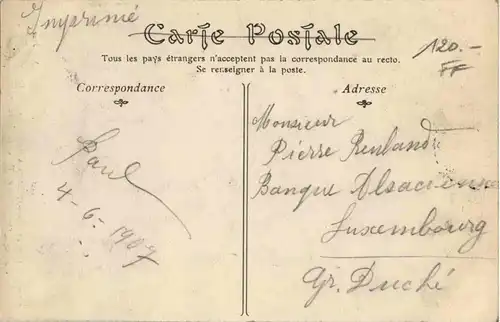 Imprimé
Carte Postale
120.-
FF
Tous les pays étrangers n'acceptent pas la correspondance au recto.
Se renseigner à la poste.
Correspondance
Adresse
Paul
4-6-1907
Monsieur
Pierre
Banque Alsacienne
Luxembourg
Gr. Duché